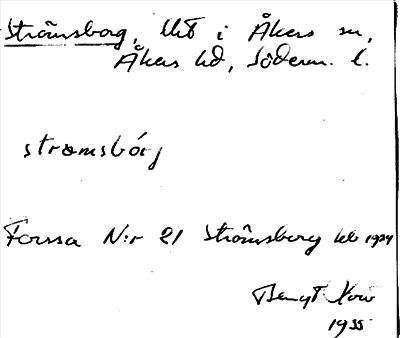 Strömsborg, Utt i Åkers sn,
Åkers hd, Söderm. l.
strømsbórj
Forssa N:r 21 Strömsberg 1924
Bengt
1935